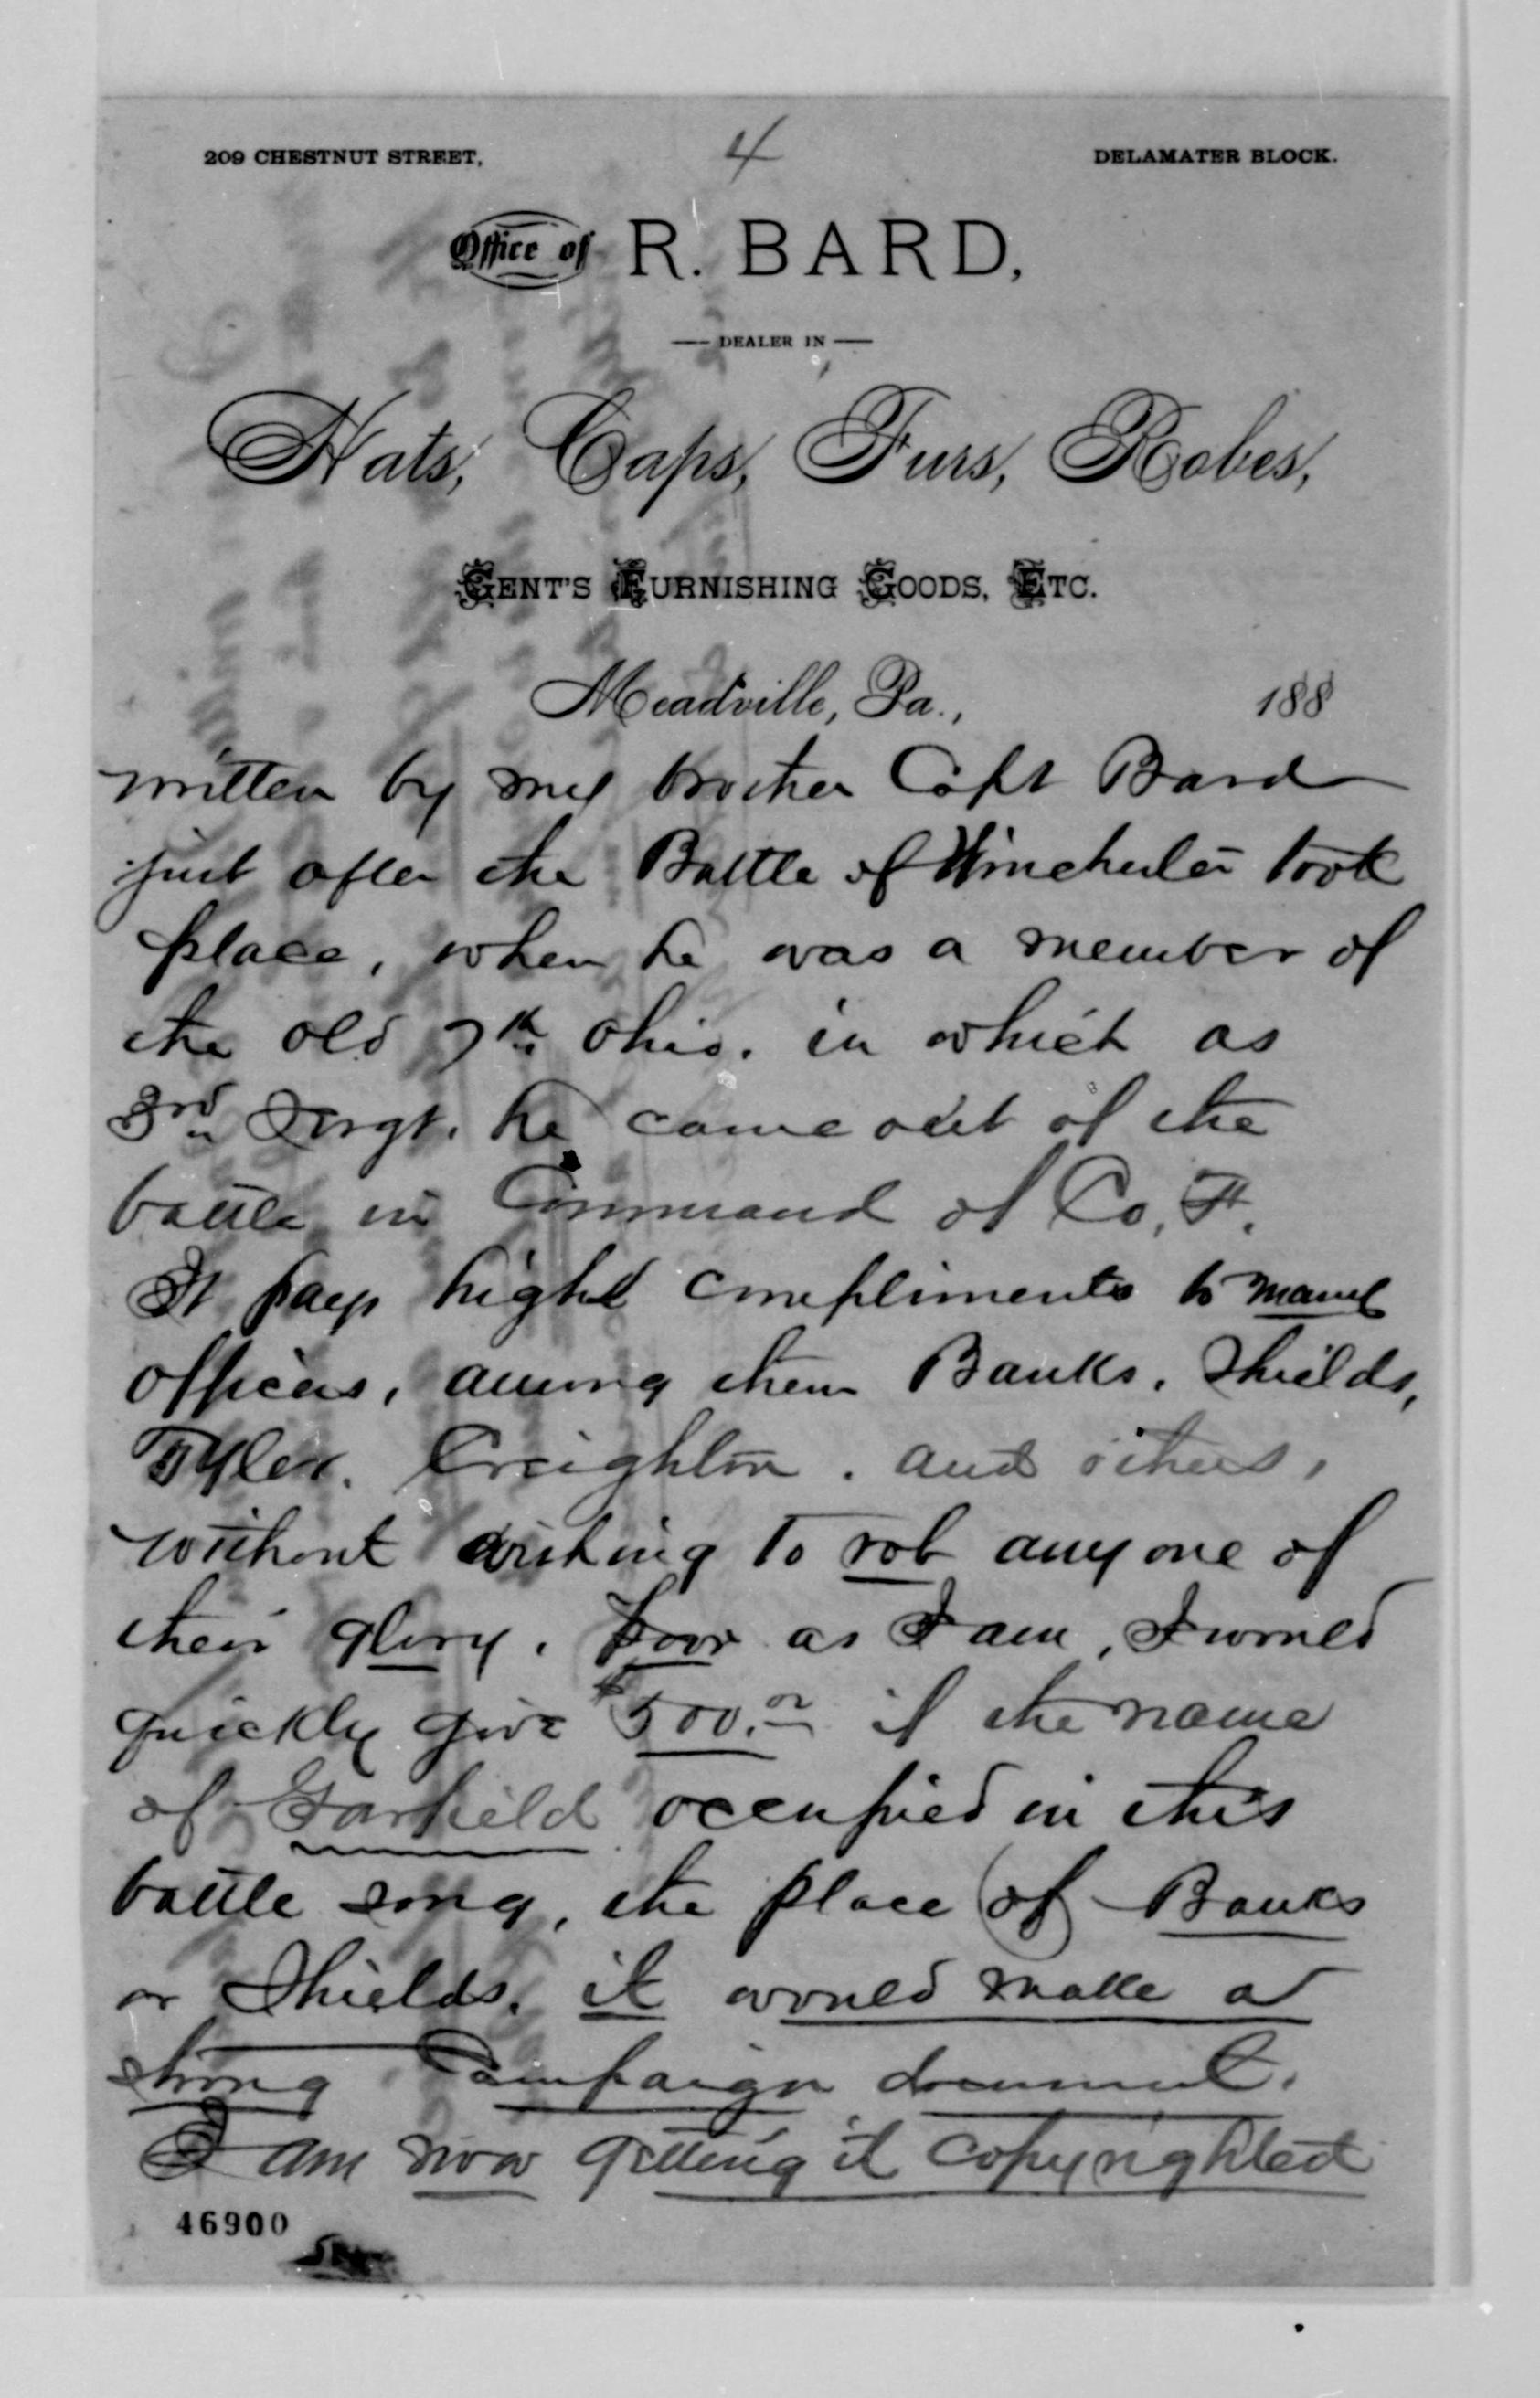 209 CHESTNUT STREET, 4 DELAMATER BLOCK.
Office of R. BARD,
DEALER IN
Hats, Caps, Furs, Robes,
GENT'S FURNISHING GOODS, ETC.
Meadville, Pa., 188
written by my brother Capt Bard
just after the Battle of Winchester took
place, when he was a member of
the old 7th Ohio. in which as
3rd Sergt. he came out of the
battle in Command of Co,
It pays high compliments to many
officers, among them Banks, Shields,
Tyler. Creighton. and others,
without wishing to rob anyone of
their glory. Poor as I am, I would
quickly give $500.00 if the name
of Garfield occupied in this
battle song, the place of Banks
or Shields, it would make a
strong Campaign document.
I am now getting it copyrighted
46900